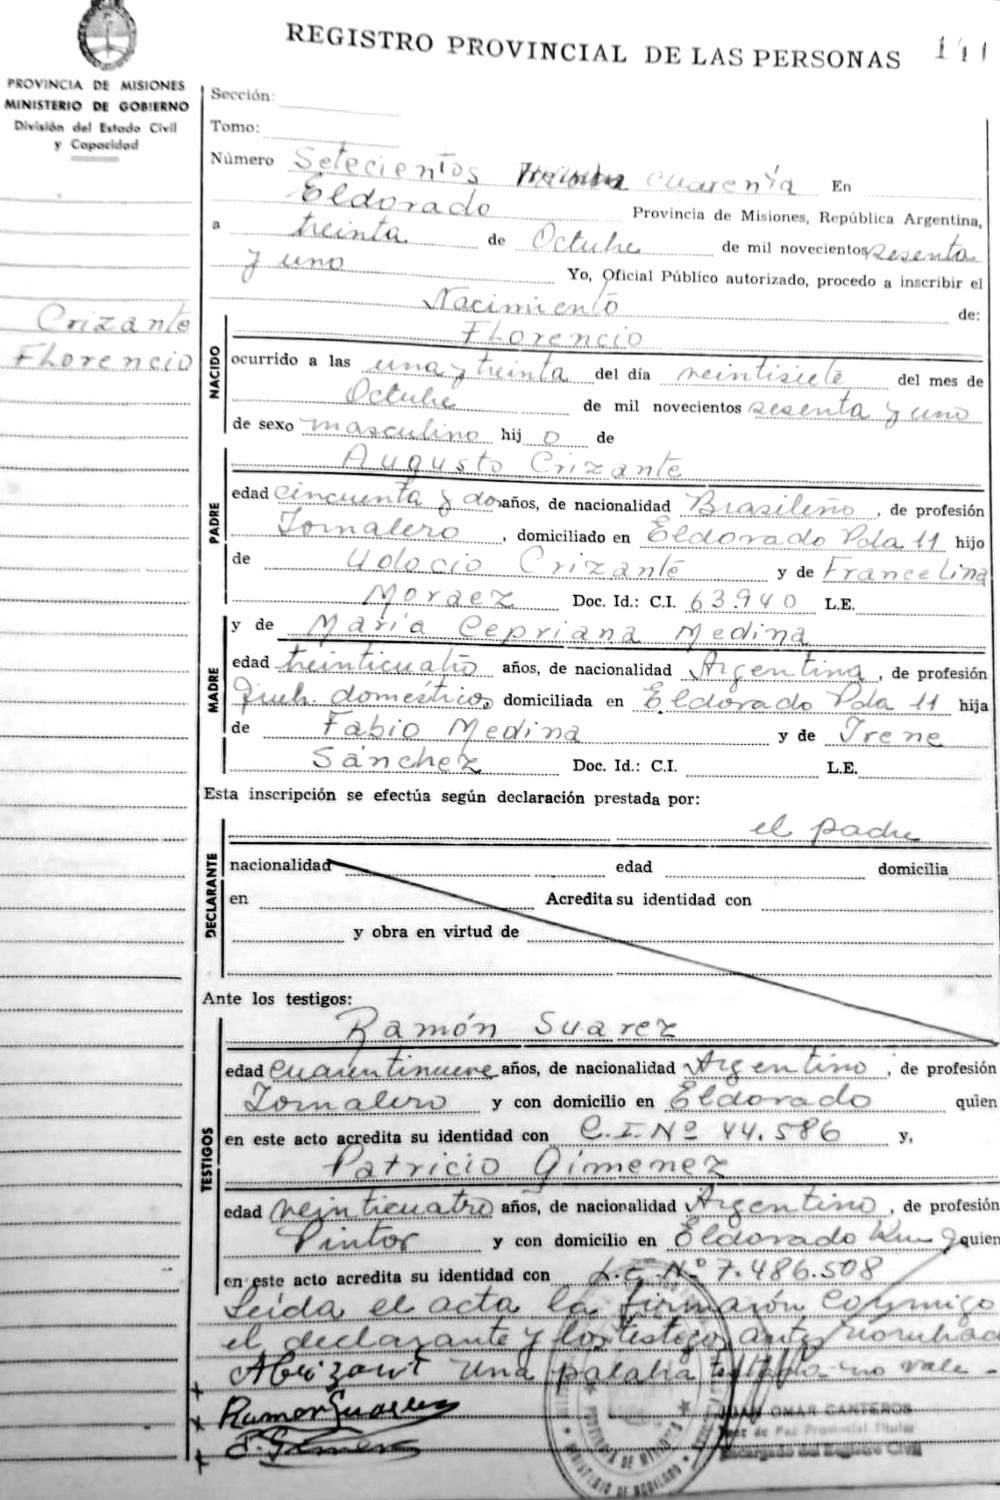 REGISTRO PROVINCIAL DE LAS PERSONAS
PROVINCIA DE MISIONES
MINISTERIO DE GOBIERNO
División del Estado Civil
y Capacidad
Crizante
Florencio
Sección:
Tomo:
Número Setecientos cuarenta En
Eldorado Provincia de Misiones, República Argentina,
a treinta de Octubre de mil novecientos sesenta
y uno Yo, Oficial Público autorizado, procedo a inscribir el
Nacimiento de:
NACIDO
Florencio
ocurrido a las una y treinta del día veintisiete del mes de
Octubre de mil novecientos sesenta y uno
de sexo masculino hij o de
PADRE
Augusto Crizante
edad cincuenta y dos años, de nacionalidad Brasileño, de profesión
Jornalero, domiciliado en Eldorado Pda 11 hijo
de Udocio Crizante y de Francelina
Moraez Doc. Id.: C.I. 63.940 L.E.
MADRE
y de María Cepriana Medina
edad treinticuatro años, de nacionalidad Argentina, de profesión
Queh. domésticos domiciliada en Eldorado Pda 11 hija
de Fabio Medina y de Irene
Sánchez Doc. Id.: C.I. L.E.
Esta inscripción se efectúa según declaración prestada por:
DECLARANTE
el padre
nacionalidad edad domicilia
en Acredita su identidad con
y obra en virtud de
Ante los testigos:
TESTIGOS
Ramón Suarez
edad cuarentinueve años, de nacionalidad Argentino, de profesión
Jornalero y con domicilio en Eldorado quien
en este acto acredita su identidad con C.I. Nº 44.586 y,
Patricio Gimenez
edad veinticuatro años, de nacionalidad Argentino, de profesión
Pintor y con domicilio en Eldorado Km 9 quien
en este acto acredita su identidad con L.E. Nº 7.486.508
Leída el acta la firmarón conmigo
el declarante y los testigos antes
Una palabra testada no vale -
Ramon Suarez
JUAN OMAR CANTEROS
Juez de Paz Provincial Titular
Encargado del Registro Civil
PROVINCIA DE MISIONES
MINISTERIO DE GOBIERNO